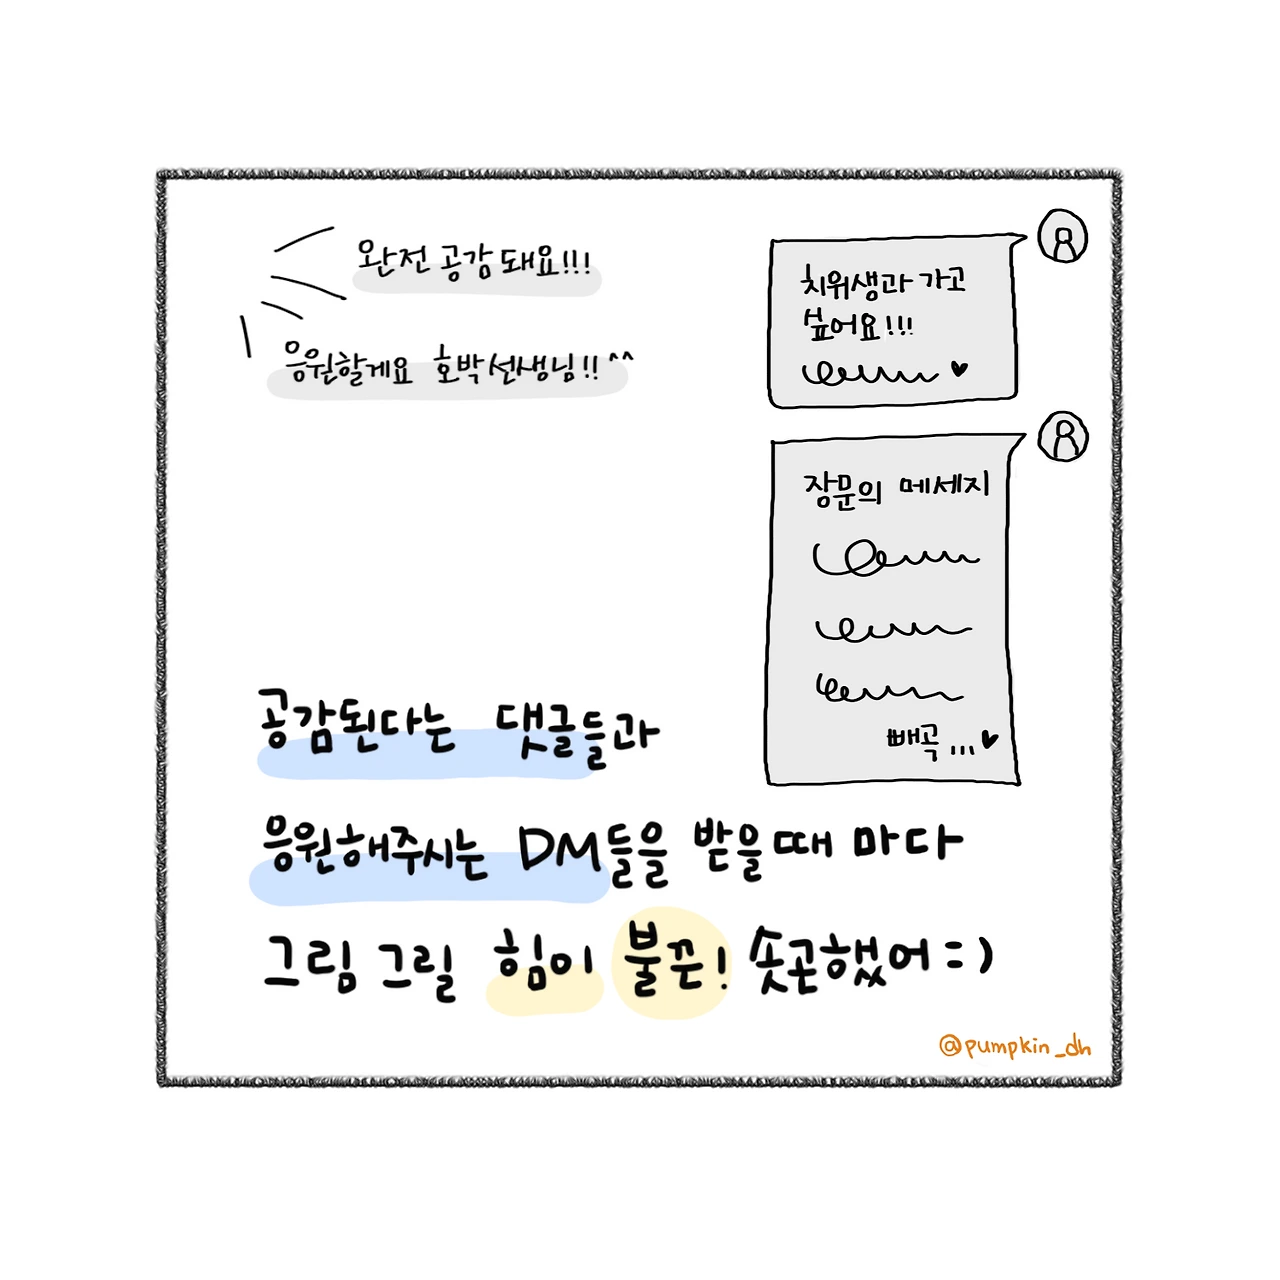 완전 공감 돼요!!!
응원할게요 호박선생님!!^^
치위생과 가고
싶어요!!!
장문의 메세지
빼곡...
공감된다는 댓글들과
응원해주시는 DM들을 받을때 마다
그림 그릴 힘이 불끈! 솟곤했어=)
@pumpkin_dh